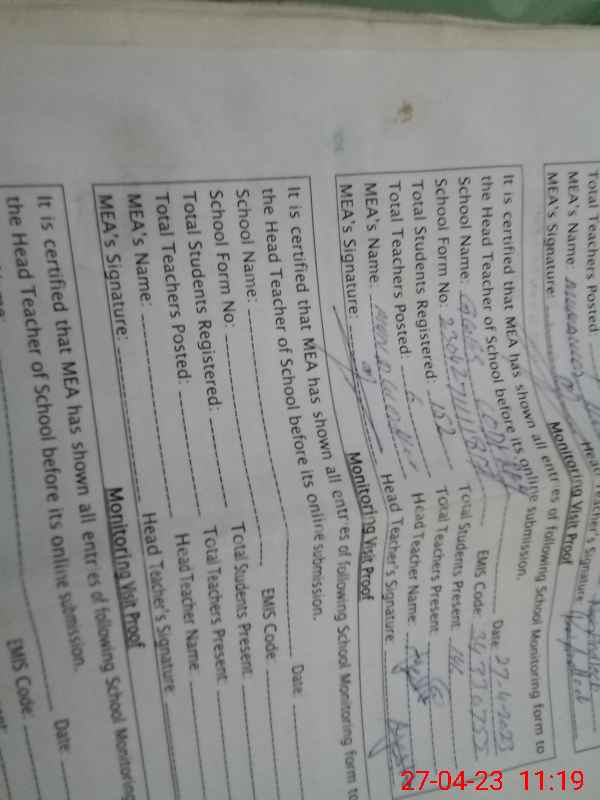 Total Teachers Posted:
MEA's Name:
MEA's Signature:
Head Teacher's Signature
Monitoring Visit Proof
It is certified that MEA has shown all entries of following School Monitoring form to
the Head Teacher of School before its online submission. Date: 27-4-2023
School Name: EMIS Code: 34770752
School Form No. Total Students Present:
Total Students Registered: 152 Total Teachers Present:
Total Teachers Posted: 6 Head Teacher Name:
MEA's Name: Head Teacher's Signature
MEA's Signature:
Monitoring Visit Proof
It is certified that MEA has shown all entries of following School Monitoring form to
the Head Teacher of School before its online submission. Date:
School Name: EMIS Code:
School Form No: Total Students Present:
Total Students Registered: Total Teachers Present:
Total Teachers Posted: Head Teacher Name:
MEA's Name: Head Teacher's Signature:
MEA's Signature:
Monitoring Visit Proof
It is certified that MEA has shown all entries of following School Monitoring
the Head Teacher of School before its online submission. Date:
EMIS Code:
27-04-23 11:19